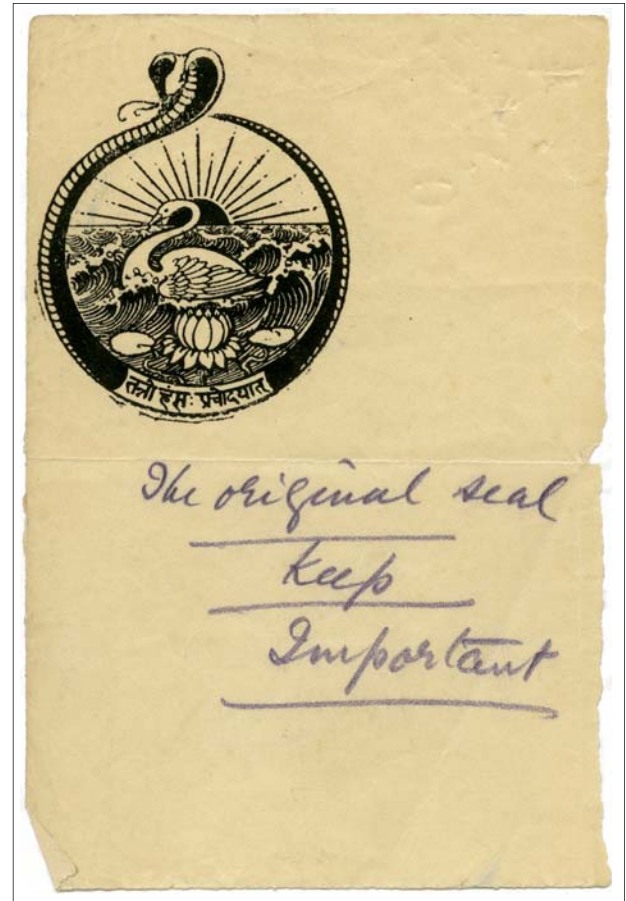 तन्नो हंसः प्रचोदयात्
The original seal
Keep
Important